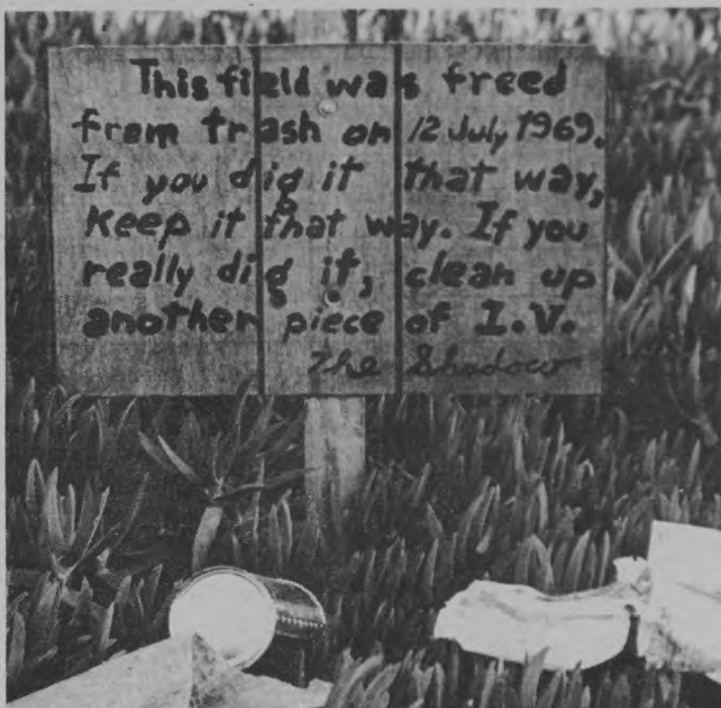 This field was freed
from trash on 12 July 1969.
If you dig it that way,
keep it that way. If you
really dig it, clean up
another piece of I.V.
The Shadow